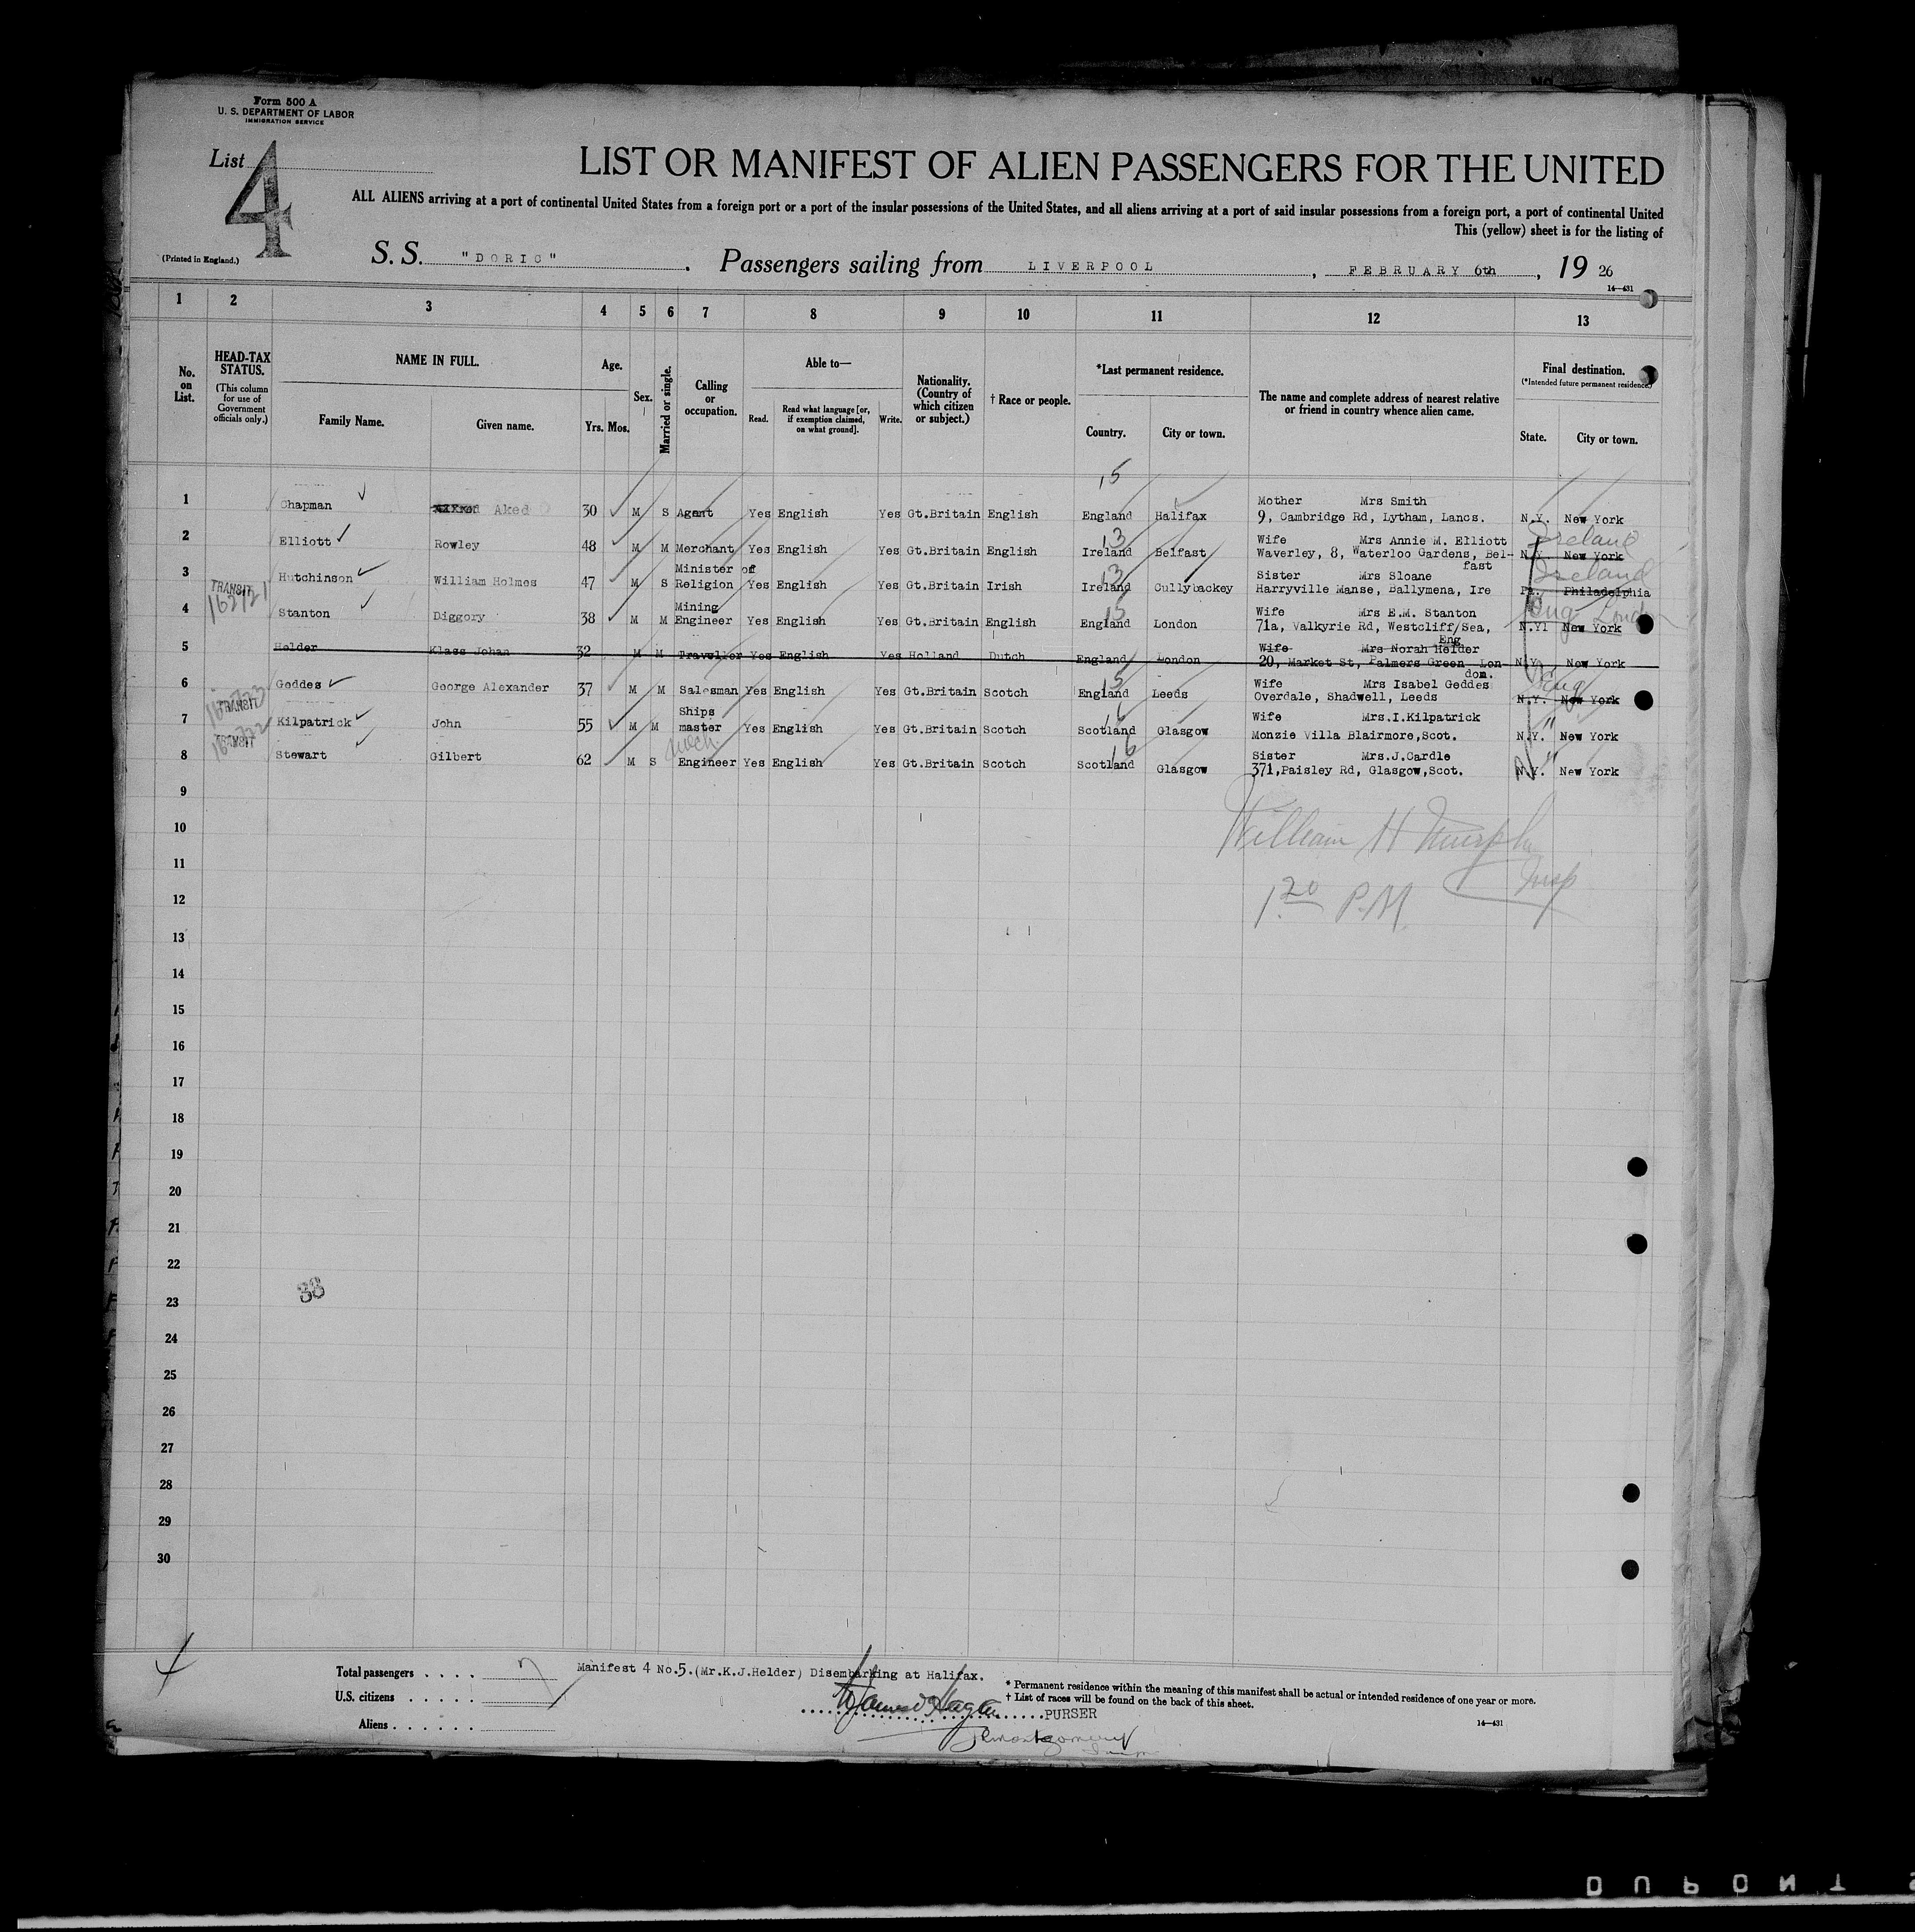 Form 500 A
U. S. DEPARTMENT OF LABOR
IMMIGRATION SERVICE
List 4
LIST OR MANIFEST OF ALIEN PASSENGERS FOR THE UNITED
ALL ALIENS arriving at a port of continental United States from a foreign port or a port of the insular possessions of the United States, and all aliens arriving at a port of said insular possessions from a foreign port, a port of continental United
This (yellow) sheet is for the listing of
(Printed in England.)
S. S. "DORIC". Passengers sailing from LIVERPOOL, FEBRUARY 6th, 19 26
14—431
1 2 3 4 5 6 7 8 9 10 11 12 13
No. on List.
HEAD-TAX STATUS.
(This column for use of Government officials only.)
NAME IN FULL.
Family Name. Given name.
Age.
Yrs. Mos.
Sex.
Married or single.
Calling or occupation.
Able to—
Read. Read what language [or, if exemption claimed, on what ground]. Write.
Nationality. (Country of which citizen or subject.)
† Race or people.
*Last permanent residence.
Country. City or town.
The name and complete address of nearest relative or friend in country whence alien came.
Final destination.
(*Intended future permanent residence.)
State. City or town.
15
Mother Mrs Smith
1 Chapman Aked 30 M S Agent Yes English Yes Gt.Britain English England Halifax 9, Cambridge Rd, Lytham, Lancs. N.Y. New York
13 Wife Mrs Annie M. Elliott Ireland
2 Elliott Rowley 48 M M Merchant Yes English Yes Gt.Britain English Ireland Belfast Waverley, 8, Waterloo Gardens, Bel- N.Y. New York
fast
Minister of 13 Sister Mrs Sloane Ireland
3 TRANSIT 162721 Hutchinson William Holmes 47 M S Religion Yes English Yes Gt.Britain Irish Ireland Cullybackey Harryville Manse, Ballymena, Ire Pa. Philadelphia
Mining 15 Wife Mrs E.M. Stanton Eng London
4 Stanton Diggory 38 M M Engineer Yes English Yes Gt.Britain English England London 71a, Valkyrie Rd, Westcliff/Sea, N.Y. New York
Eng
Wife Mrs Norah Helder
5 Helder Klass Johan 32 M M Traveller Yes English Yes Holland Dutch England London 20, Market St, Palmers Green Lon- N.Y. New York
don.
15 Wife Mrs Isabel Geddes Eng
6 TRANSIT Geddes George Alexander 37 M M Salesman Yes English Yes Gt.Britain Scotch England Leeds Overdale, Shadwell, Leeds N.Y. New York
Ships 16 Wife Mrs.I.Kilpatrick "
7 TRANSIT Kilpatrick John 55 M M master Yes English Yes Gt.Britain Scotch Scotland Glasgow Monzie Villa Blairmore,Scot. N.Y. New York
Mech. 16 Sister Mrs.J.Cardle "
8 Stewart Gilbert 62 M S Engineer Yes English Yes Gt.Britain Scotch Scotland Glasgow 371,Paisley Rd, Glasgow,Scot. N.Y. New York
9
10 William H Murphy
11 Insp
12 1.20 P.M.
13
14
15
16
17
18
19
20
21
22
33
23
24
25
26
27
28
29
30
4
Total passengers . . . . 7
Manifest 4 No.5.(Mr.K.J.Helder) Disembarking at Halifax.
U.S. citizens . . . . .
Aliens . . . . . .
* Permanent residence within the meaning of this manifest shall be actual or intended residence of one year or more.
† List of races will be found on the back of this sheet.
PURSER
14—431
Montgomery
DUPONT